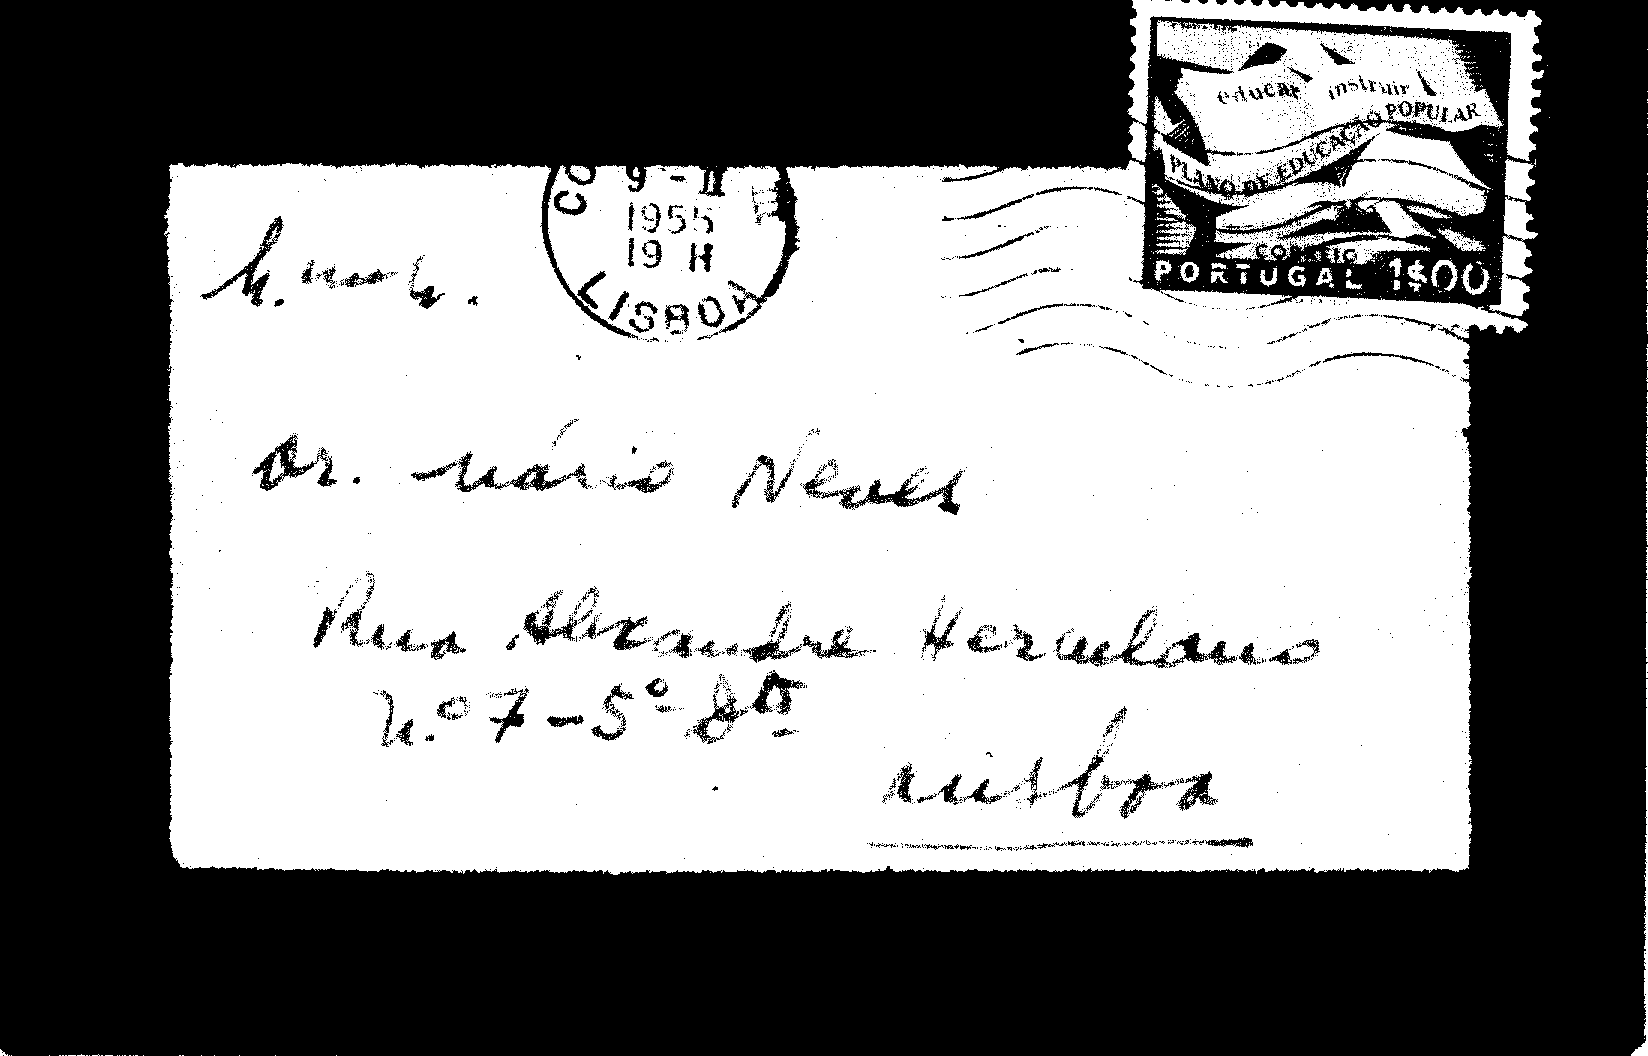 educar instruir
PLANO DE EDUCAÇÃO POPULAR
CORREIO
PORTUGAL 1$00
9 - II
1955
19 H
LISBOA
Dr. Mário Neves
Rua Alexandre Herculano
N.º 7 - 5º Dtº
Lisboa